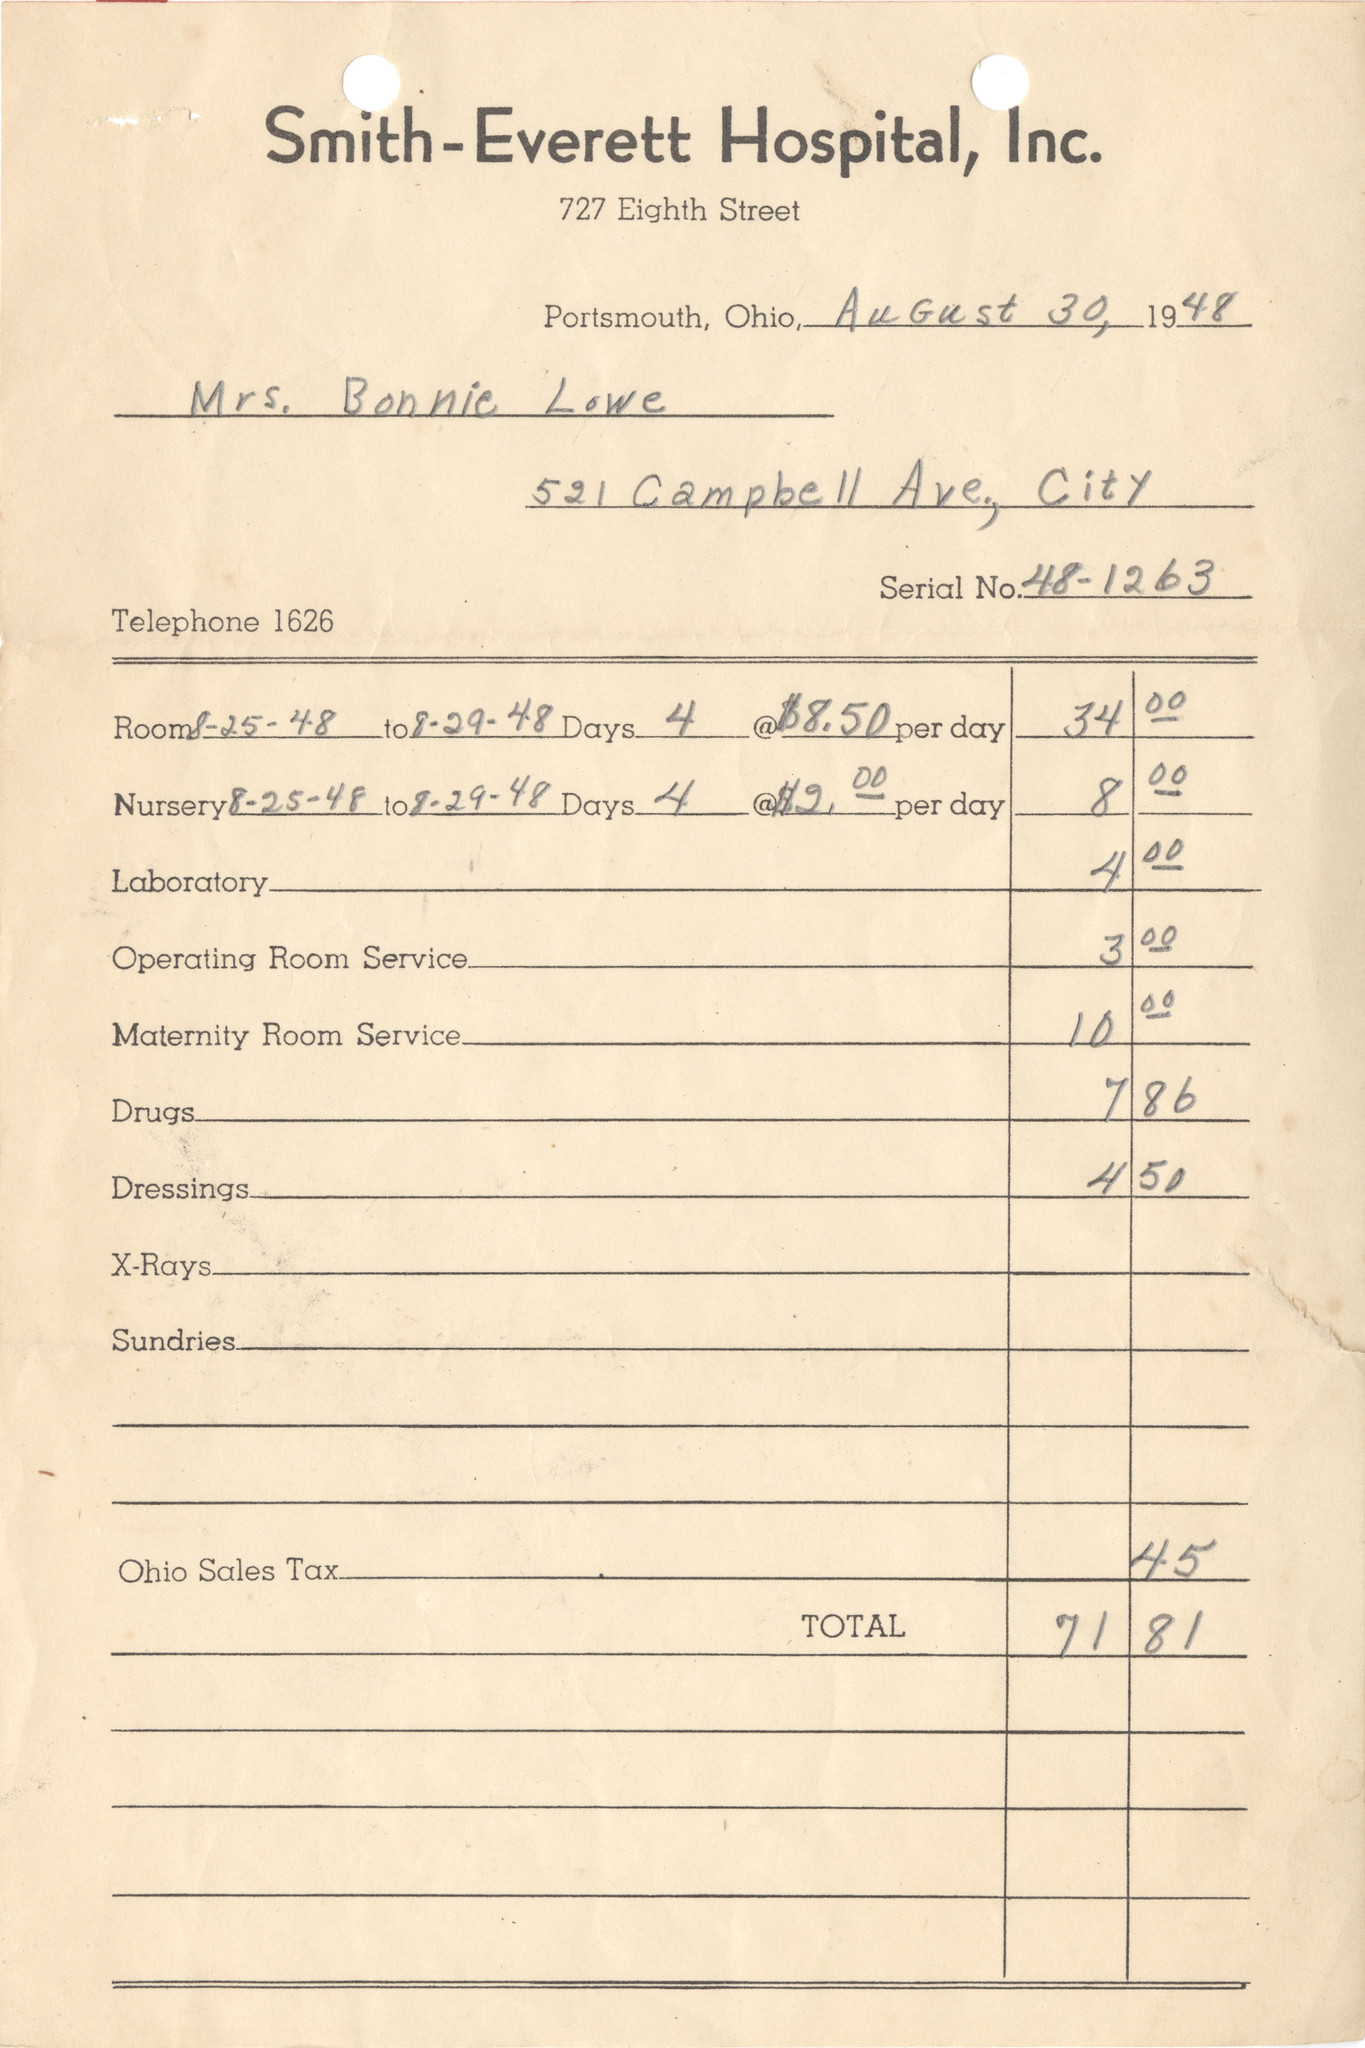 Smith-Everett Hospital, Inc.
727 Eighth Street
Portsmouth, Ohio, August 30, 1948
Mrs. Bonnie Lowe
521 Campbell Ave., City
Serial No. 48-1263
Telephone 1626
Room 8-25-48 to 8-29-48 Days 4 @ $8.50 per day 34 00
Nursery 8-25-48 to 8-29-48 Days 4 @ $2.00 per day 8 00
Laboratory 4 00
Operating Room Service 3 00
Maternity Room Service 10 00
Drugs 7 86
Dressings 4 50
X-Rays
Sundries
Ohio Sales Tax 45
TOTAL 71 81